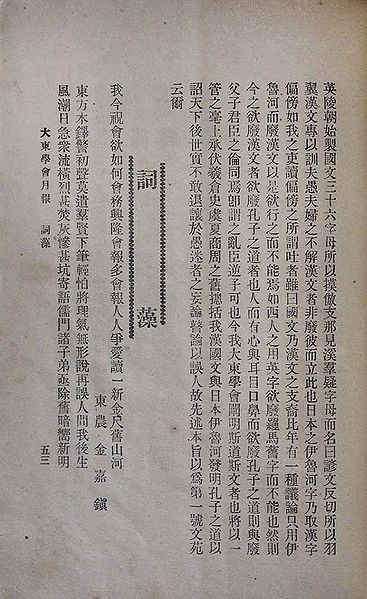 英陵朝始製國文三十六字母所以摸倣支那見溪羣疑字母而名曰諺文反切所以羽
翼漢文專以訓夫愚夫婦之不解漢文者非廢彼而立此也日本之伊魯河字乃取漢字
偏傍如我之吏讀偏傍之所謂吐者雖曰國文乃漢文之支裔比年有一種議論只用伊
魯河而廢漢文以是欲行之而不能焉如西人之用英字欲廢羅馬舊字而不能也然則
今之欲廢漢文者欲廢孔子之道者也人而有心與耳目口鼻而欲廢孔子之道則與廢
父子君臣之倫同焉卽謂之亂臣逆子可也今我大東學會闡明斯道斯文者也將以一
管之毫上承伏羲倉史虞夏商周之舊摠括我漢國文與日本伊魯河發明孔子之道以
詔天下後世實不敢退讓於愚迷者之妄論瞽論以誤人故先述本旨以爲第一號文苑
云爾
詞藻
東農金嘉鎭
我今視會欲如何會務興隆會報多會報人人爭愛讀一新金尺舊山河
東方木鐸警初聲莫遣羣賢下筆輕怕將理氣無形說再誤人間我後生
風潮日急衆流橫烈甚焚灰慘甚坑寄語儒門諸子弟亟除舊暗嚮新明
大東學會月報 詞藻 五三